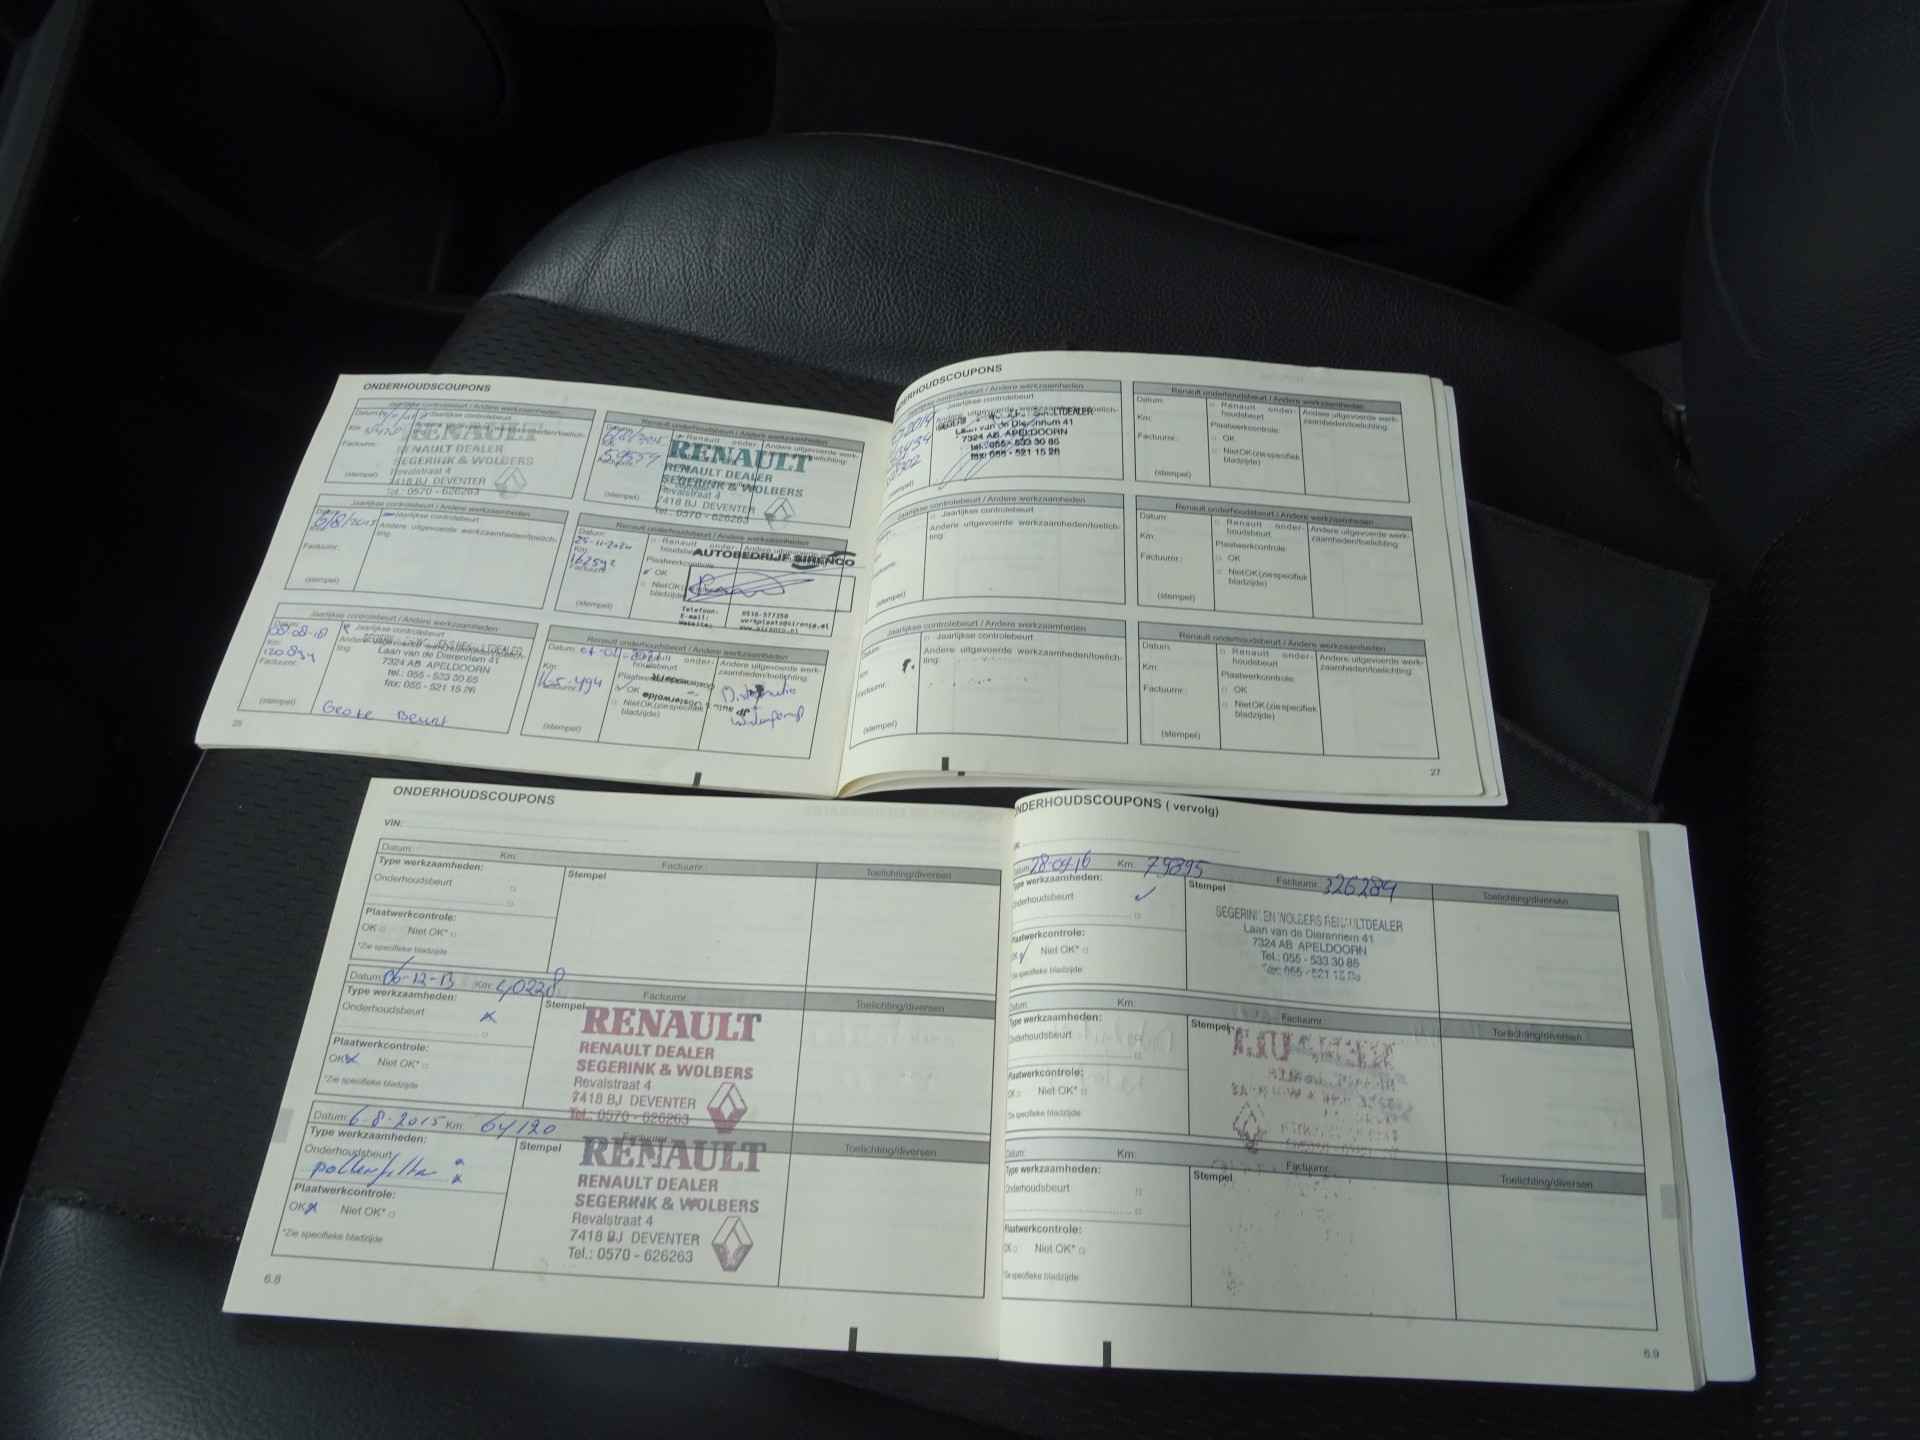 ONDERHOUDSCOUPONS
Jaarlijkse controlebeurt / Andere werkzaamheden
Datum:
Jaarlijkse controlebeurt
Km
Factuurnr.:
(stempel)
RENAULT
RENAULT DEALER
SEGERINK & WOLBERS
Revalstraat 4
7418 BJ DEVENTER
Tel.: 0570 - 626263
Renault onderhoudsbeurt / Andere werkzaamheden
Datum:
(stempel)
RENAULT
RENAULT DEALER
SEGERINK & WOLBERS
Revalstraat 4
7418 BJ DEVENTER
Tel.: 0570 - 626263
Jaarlijkse controlebeurt / Andere werkzaamheden
6/8/2015
Jaarlijkse controlebeurt
Andere uitgevoerde werkzaamheden/toelich-
ting:
Factuurnr.:
(stempel)
Renault onderhoudsbeurt / Andere werkzaamheden
Datum:
25-11-2020
Km:
162592
Factuurnr.
(stempel)
Renault onder-
houdsbeurt
Plaatwerkcontrole
OK
AUTOBEDRIJF SIRENCO
Telefoon: 0516-577350
E-mail:
Website: www.sirenco.nl
Jaarlijkse controlebeurt / Andere werkzaamheden
Datum:
08-08-18
Km:
120894
Factuurnr.:
(stempel)
Jaarlijkse controlebeurt
ting:
Laan van de Dierenriem 41
7324 AB APELDOORN
tel.: 055 - 533 30 85
fax: 055 - 521 15 26
Grote Beurt
Renault onderhoudsbeurt / Andere werkzaamheden
Datum:
Km:
165.494
Factuurnr.
(stempel)
OK
Niet OK (zie specifiek
bladzijde)
Andere uitgevoerde werk-
zaamheden/toelichting:
Distributie
waterpomp
26
ONDERHOUDSCOUPONS
Jaarlijkse controlebeurt / Andere werkzaamheden
Jaarlijkse controlebeurt
Laan van de Dierenriem 41
7324 AB APELDOORN
tel.: 055 - 533 30 85
fax: 055 - 521 15 26
(stempel)
Renault onderhoudsbeurt / Andere werkzaamheden
Datum:
Km:
Factuurnr.:
(stempel)
Renault onder-
houdsbeurt
Plaatwerkcontrole:
OK
Niet OK (zie specifiek
bladzijde)
Andere uitgevoerde werk-
zaamheden/toelichting:
Jaarlijkse controlebeurt / Andere werkzaamheden
Datum:
Km:
Factuurnr.:
(stempel)
Jaarlijkse controlebeurt
Andere uitgevoerde werkzaamheden/toelich-
ting:
Renault onderhoudsbeurt / Andere werkzaamheden
Datum:
Km:
Factuurnr.:
(stempel)
Renault onder-
houdsbeurt
Plaatwerkcontrole
OK
Niet OK (zie specifiek
bladzijde)
Andere uitgevoerde werk-
zaamheden/toelichting:
Jaarlijkse controlebeurt / Andere werkzaamheden
Datum:
Km:
Factuurnr.:
(stempel)
Jaarlijkse controlebeurt
Andere uitgevoerde werkzaamheden/toelich-
ting:
Renault onderhoudsbeurt / Andere werkzaamheden
Datum:
Km:
Factuurnr.:
(stempel)
Renault onder-
houdsbeurt
Plaatwerkcontrole:
OK
Niet OK (zie specifiek
bladzijde)
Andere uitgevoerde werk-
zaamheden/toelichting:
27
ONDERHOUDSCOUPONS
VIN:
Datum: Km: Factuurnr.:
Type werkzaamheden: Stempel Toelichting/diversen
Onderhoudsbeurt
Plaatwerkcontrole:
OK Niet OK*
*Zie specifieke bladzijde
Datum: 06-12-13 Km: 40228 Factuurnr.
Type werkzaamheden: Stempel Toelichting/diversen
Onderhoudsbeurt
Plaatwerkcontrole:
OK Niet OK*
*Zie specifieke bladzijde
RENAULT
RENAULT DEALER
SEGERINK & WOLBERS
Revalstraat 4
7418 BJ DEVENTER
Tel.: 0570 - 626263
Datum: 6-8-2015 Km: 64120 Factuurnr.
Type werkzaamheden: Stempel Toelichting/diversen
Onderhoudsbeurt
pollenfilter
Plaatwerkcontrole:
OK Niet OK*
*Zie specifieke bladzijde
RENAULT
RENAULT DEALER
SEGERINK & WOLBERS
Revalstraat 4
7418 BJ DEVENTER
Tel.: 0570 - 626263
6.8
ONDERHOUDSCOUPONS ( vervolg)
Datum: 28-04-16 Km: 79895 Factuurnr. 326284
Type werkzaamheden: Stempel Toelichting/diversen
Onderhoudsbeurt
Plaatwerkcontrole:
OK Niet OK*
*Zie specifieke bladzijde
SEGERINK EN WOLBERS RENAULTDEALER
Laan van de Dierenriem 41
7324 AB APELDOORN
Tel.: 055 - 533 30 85
Fax: 055 - 521 15 26
Datum: Km: Factuurnr.:
Type werkzaamheden: Stempel Toelichting/diversen
Onderhoudsbeurt
Plaatwerkcontrole:
OK Niet OK*
*Zie specifieke bladzijde
Datum: Km: Factuurnr.
Type werkzaamheden: Stempel Toelichting/diversen
Onderhoudsbeurt
Plaatwerkcontrole:
OK Niet OK*
*Zie specifieke bladzijde
6.9